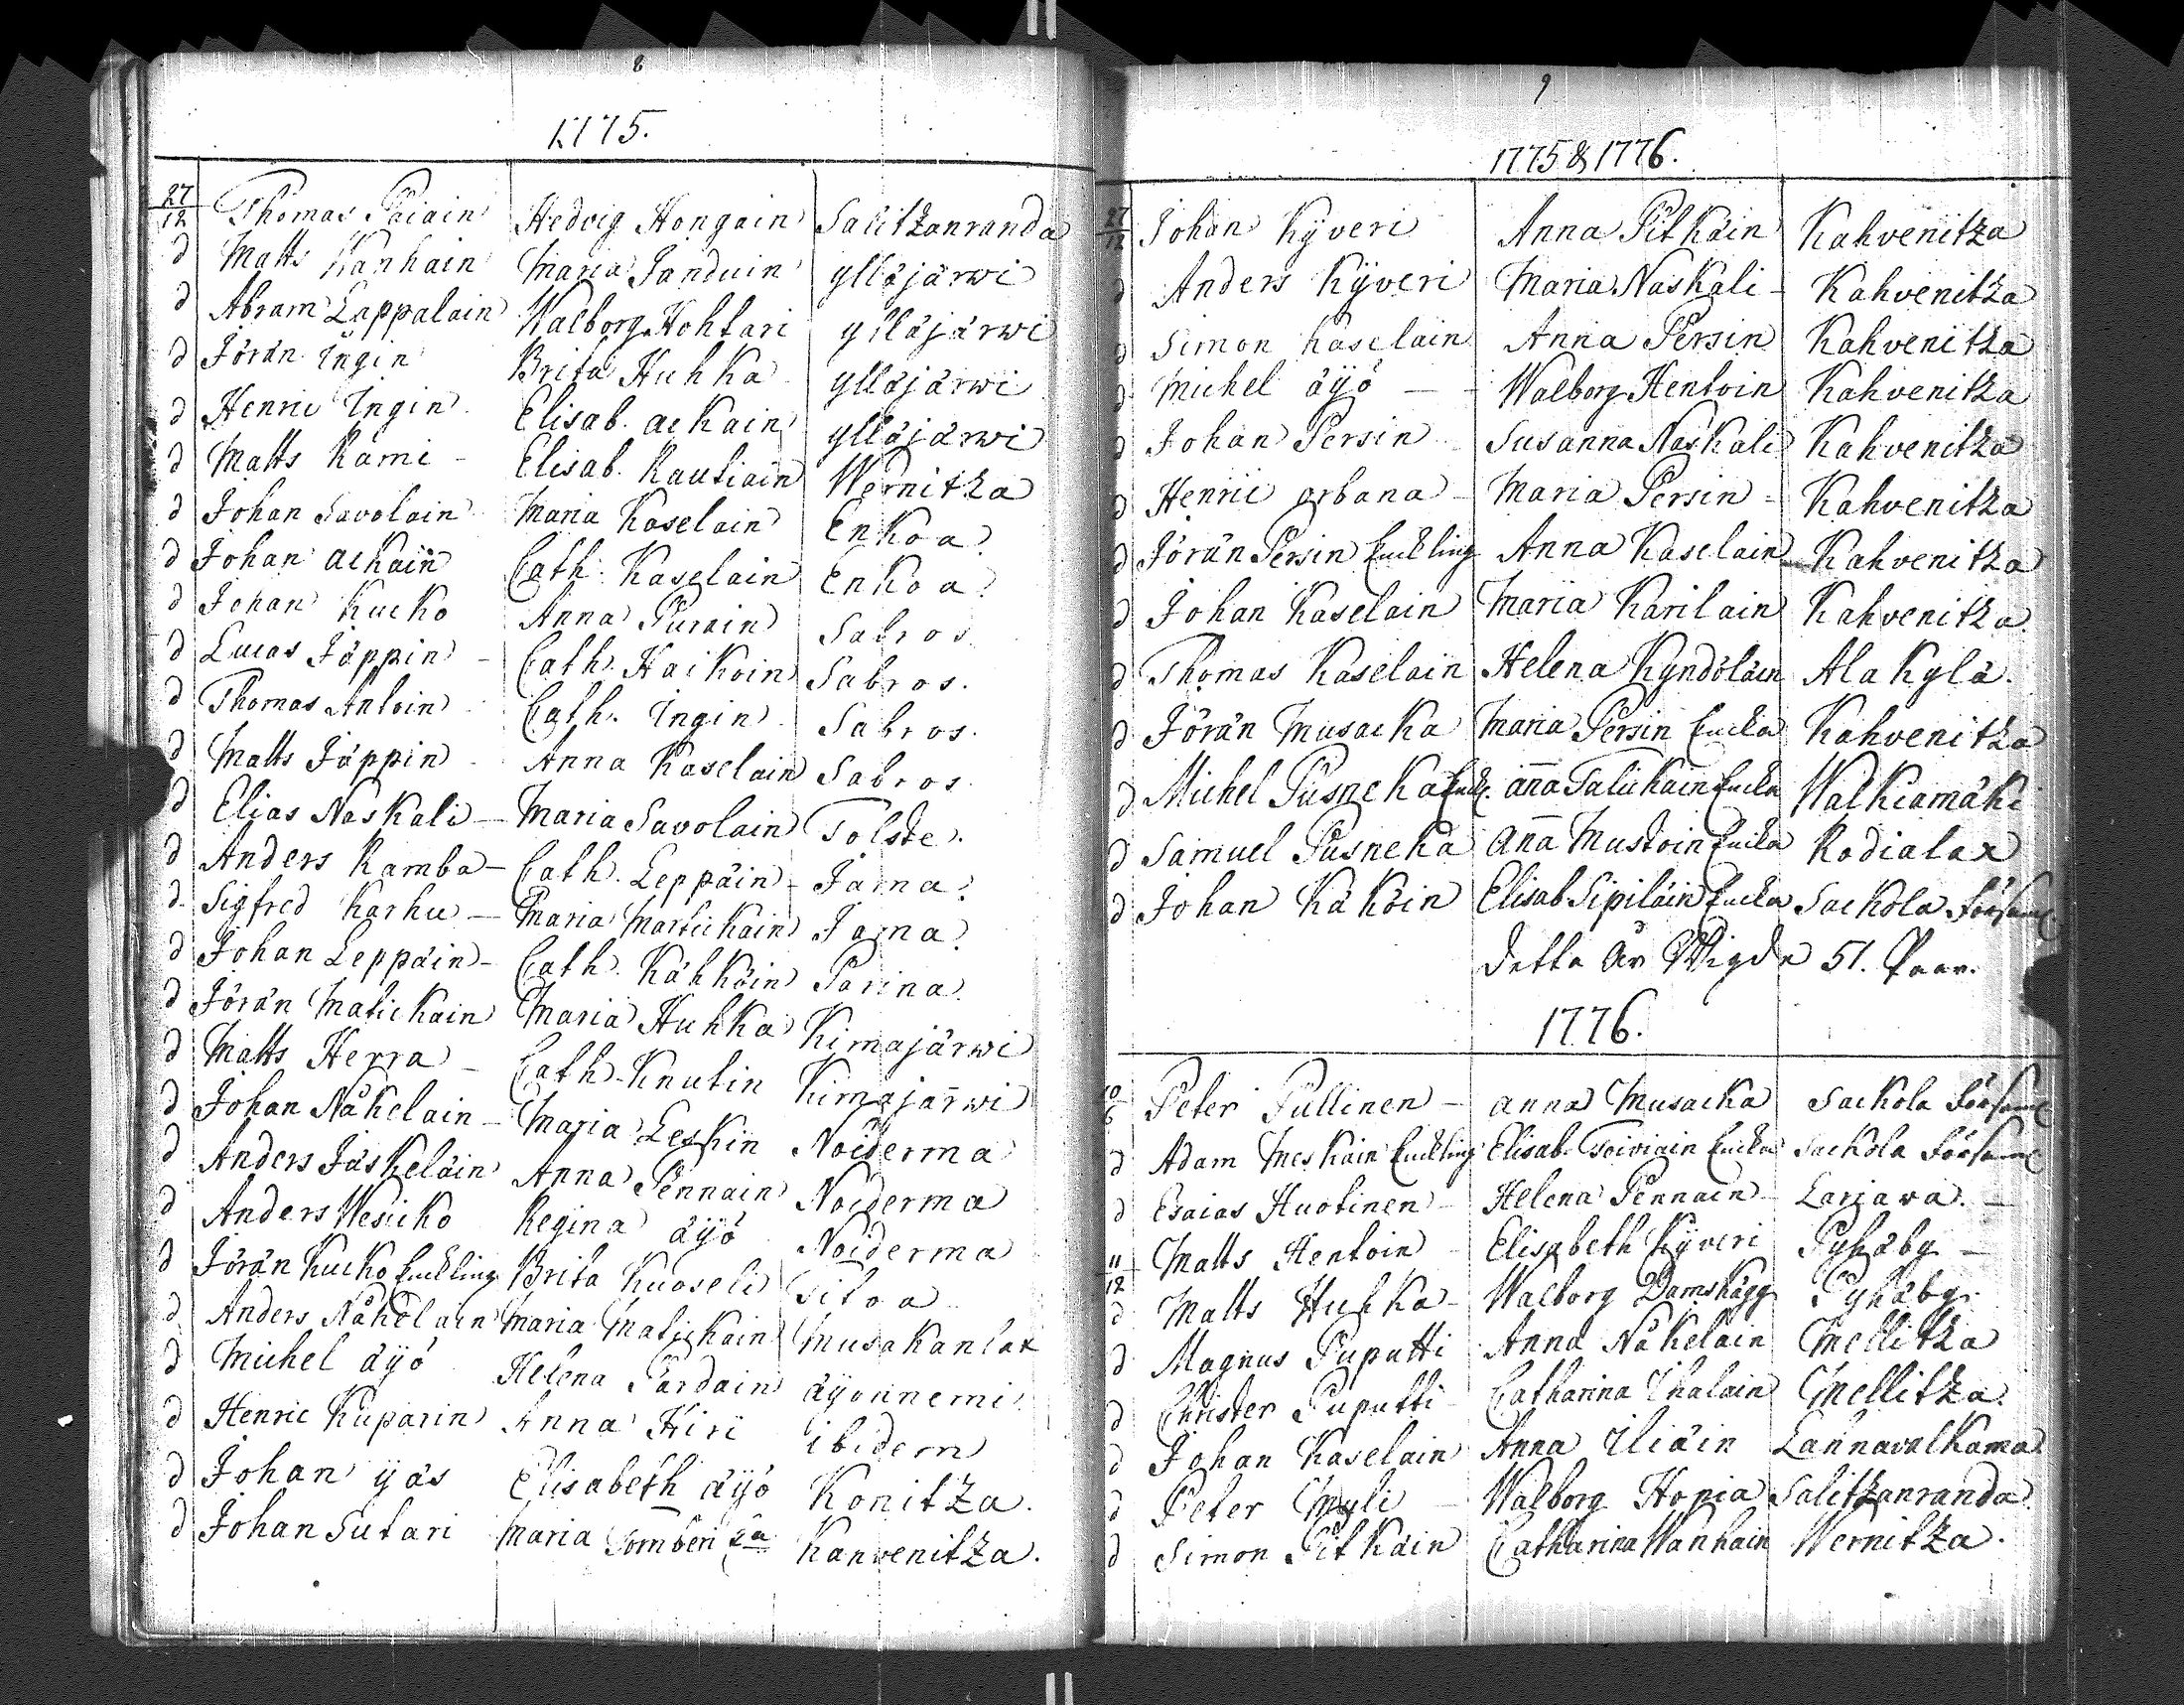 8
1775.
27/12 Thomas Paiain Hedvig Hongain Salitzanranda
d Matts Wanhain Maria Janduin ylläjärwi
d Abram Lappalain Walborg Hohtari ylläjärwi
d Jöran Ingin Brita Huhka ylläjärwi
d Henric Ingin Elisab. ackain ylläjärwi
d Matts Rämi - Elisab. Rautiain Wernitza
d Johan Savolain Maria Kaselain Enkoa
d Johan ackain Cath. Kaselain Enkoa
d Johan Kucko Anna Purain Sabros
d Lucas Jäppin - Cath. Haikoin Sabros.
d Thomas Antoin Cath. Ingin Sabros.
d Matts Jäppin Anna Kaselain Sabros
d Elias Naskali - Maria Savolain Tolste.
d Anders Ramba - Cath. Leppäin - Jama
d Sigfred Karhu - Maria Martickain Jama
d Johan Leppäin - Cath. Kähköin Parina
d Jöran Matickain Maria Huhka Kimajärwi
d Matts Herra - Cath. Knutin Kimajärwi
d Johan Näkelain - Maria Leskin Noiderma
d Anders Jäskeläin Anna Pennain Noiderma
d Anders Wesicko Regina äyö Noiderma
d Jöran Kucko Enckling Brita Kuoseli Titoa
d Anders Näkelain Maria Matickain Musakanlax
d Michel äyö Helena Pärdain äyönnemi
d Henric Kuparin Anna Hiri ibidem
d Johan yäs Elisabeth äyö Konitza.
d Johan Sutari Maria Tomberi Kanvenitza.
9
1775 & 1776.
27/12 Johan Kyveri Anna Pitkäin Kahvenitza
d Anders Kyveri Maria Naskali - Kahvenitza
d Simon Kaselain Anna Persin Kahvenitza
d Michel äyö - Walborg Hentoin Kahvenitza
d Johan Persin Susanna Naskali Kahvenitza
d Henric orbana - Maria Persin - Kahvenitza
d Jöran Persin Enckling Anna Kaselain Kahvenitza
d Johan Kaselain Maria Karilain Kahvenitza
d Thomas Kaselain Helena Kyndöläin Ala Kylä.
d Jöran Musacka Maria Persin Encka Kahvenitza
d Michel Pusneka Enck. aña Talickain Encka Walkiamäki
d Samuel Pusneka aña Mustoin Encka Rodialax
d Johan Käköin Elisab Sipiläin Encka Sackola Församl
Detta År Wigde 51. Paar.
1776.
10/6 Peter Pullinen - anna Musacka Sackola Församl
d Adam Meskain Enckling Elisab. Toiviain Encka Sackola Församl
d Esaias Huotinen - Helena Pennain - Larjava. -
11/12 Matts Hentoin - Elisabeth Kyveri Pyhäby -
d Matts Huhka - Walborg Damskägg Pyhäby.
d Magnus Puputti Anna Näkelain Mellitza
d Christer Puputti Catharina Ihalain Mellitza.
d Johan Kaselain Anna Iliäin Lannavalkama
d Peter Myli - Walborg Hopia Salitzanranda
d Simon Pitkäin Catharina Wanhain Wernitza.